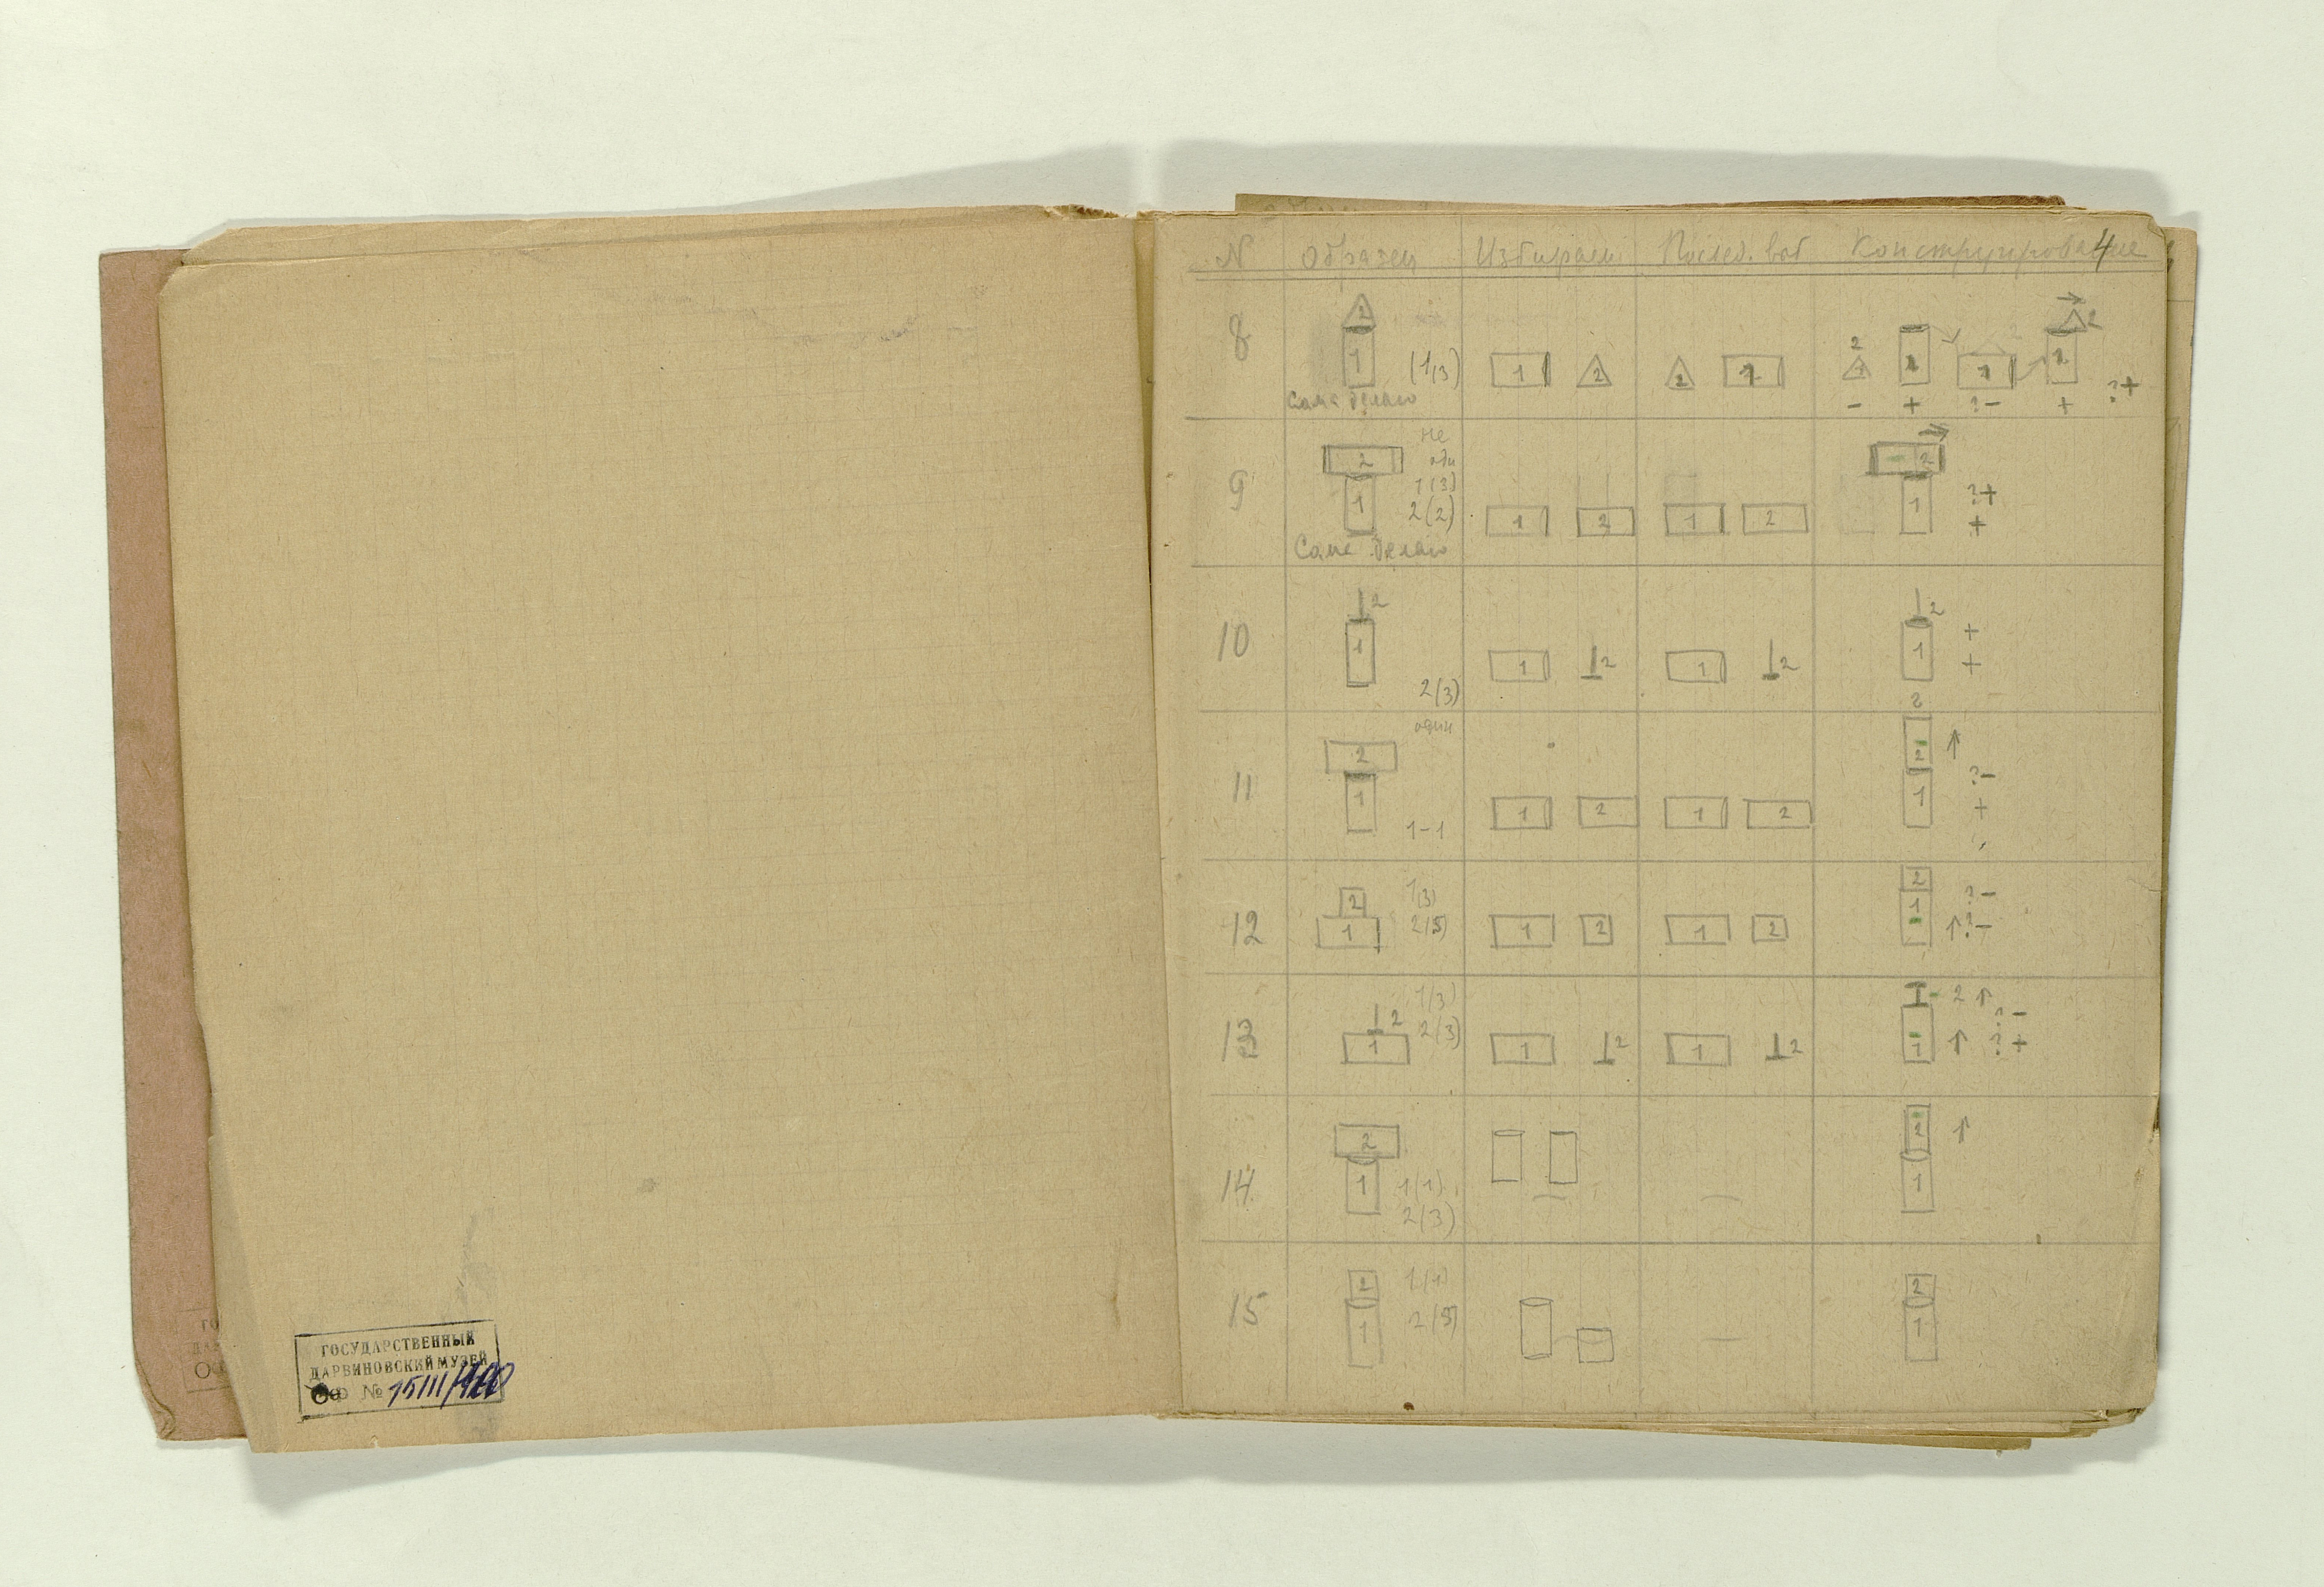 ГО
ДА
ОФ
ГОСУДАРСТВЕННЫЙ
ДАРВИНОВСКИЙ МУЗЕЙ
ОФ № 15111/
4
N Образец Избираем Послед. Конструирование
8 2 1 (1,3) 1 2 2 1 2 1 1 1 1 2
Сама делаю - + ?- + ?+
9 2 не
1 1(3)
2(2) 1 2 1 2 2 1 ?+
+
Сама делаю
10 2 1 2(3) 1 2 1 2 2 1 +
+
2
11 один
2 1 1-1 1 2 1 2 2 1 ↑ ?-
+
12 2 1 1(3)
2(3) 1 2 1 2 2 1 ?-
↑?-
13 2 1 1(3)
2(3) 1 2 1 2 2 ↑ ?-
1 ↑ ?+
14 2 1 1(1)
2(3) — — 2 ↑
1
15 2 1 1(1)
2(3) — 2
1